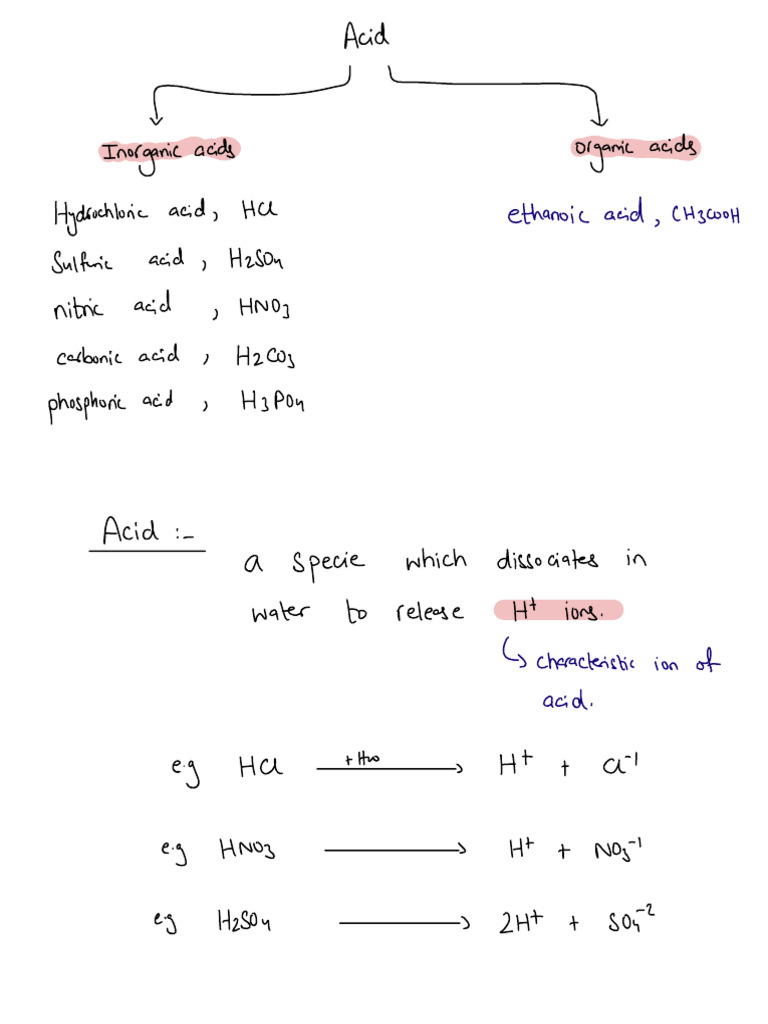 Acid
Inorganic acids
organic acids
Hydrochloric acid, HCl
ethanoic acid, CH3COOH
Sulfuric acid, H2SO4
nitric acid, HNO3
carbonic acid, H2CO3
phosphoric acid, H3PO4
Acid :-
a specie which dissociates in
water to release H+ ions.
↳ characteristic ion of
acid.
e.g HCl + H2O → H+ + Cl-1
e.g HNO3 → H+ + NO3-1
e.g H2SO4 → 2H+ + SO4-2